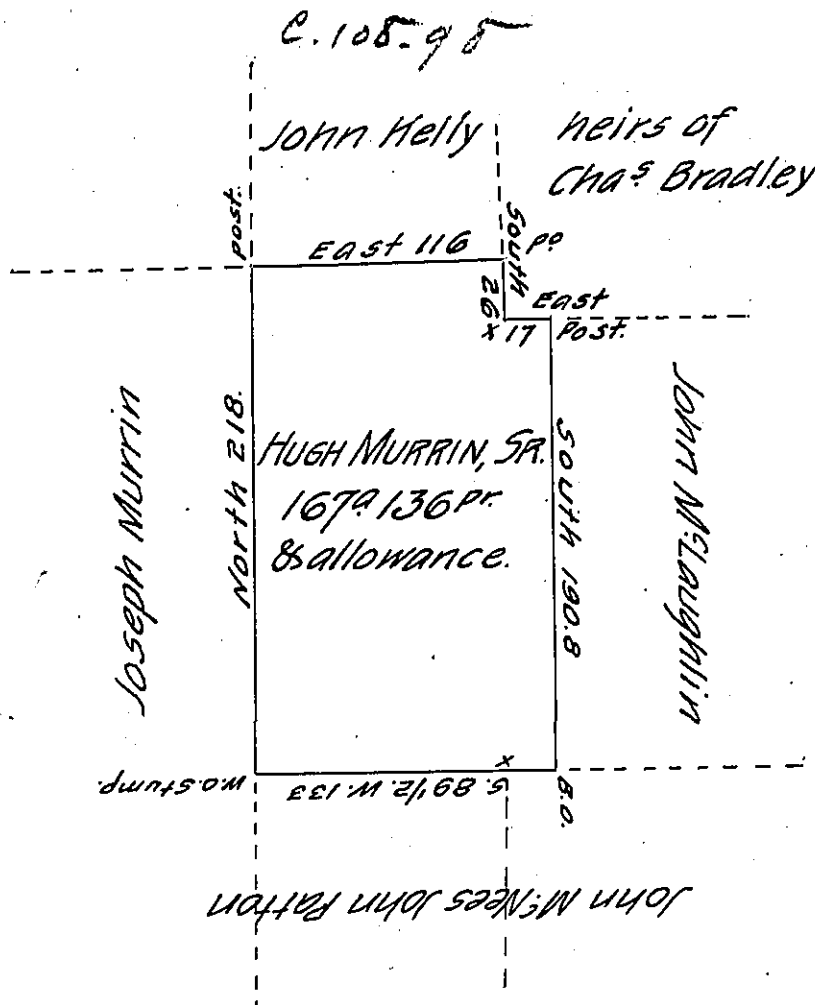 C. 105-95
John Kelly
heirs of
Chas Bradley
Post.
East 116
Po
South
26
East
x 17
Post.
Joseph Murrin
North 218.
HUGH MURRIN, SR.
167a 136 Pr.
& allowance.
South 190.8
John McLaughlin
W.O. Stump.
S. 89 1/2 W. 133
x
B.O.
John McNees John Patton